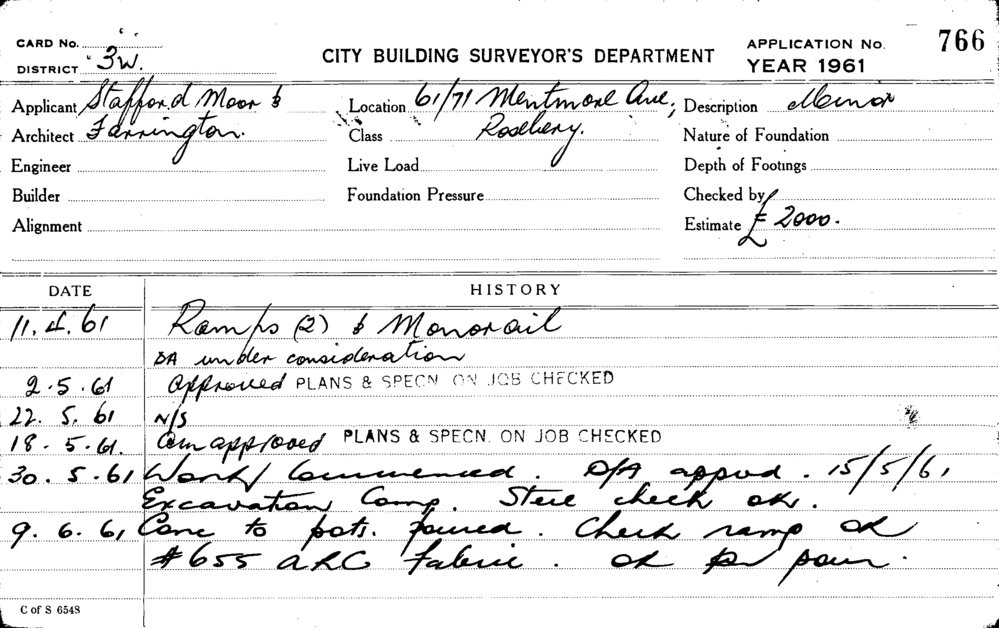 CARD No.
DISTRICT 3W.
CITY BUILDING SURVEYOR'S DEPARTMENT
APPLICATION No. 766
YEAR 1961
Applicant Stafford, Moor &
Architect Farrington.
Engineer
Builder
Alignment
Location 61/71 Mentmore Ave,
Class Rosebery.
Live Load
Foundation Pressure
Description Minor
Nature of Foundation
Depth of Footings
Checked by
Estimate £ 2000.
DATE HISTORY
11.4.61 Ramps (2) & Monorail
DA under consideration
2.5.61 Approved PLANS & SPECN. ON JOB CHECKED
22.5.61 N/S
18.5.61. approved PLANS & SPECN. ON JOB CHECKED
30.5.61 Work Commenced. D/A appvd. 15/5/61
Excavation Comp. Steel check ok.
9.6.61 Conc to poured. Check ramp ok
#655 ARC Fabric. ok for pour.
C of S 6548